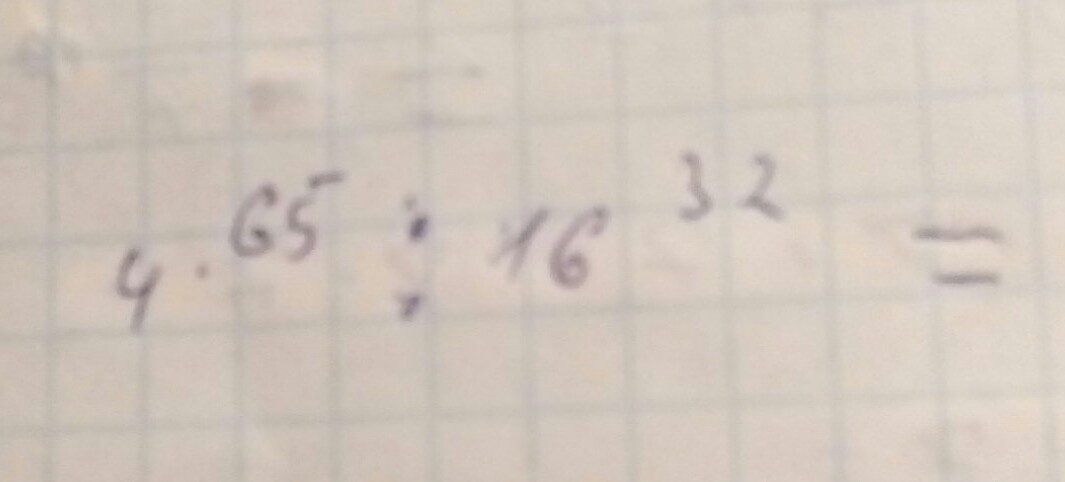 4^65 : 16^32 =